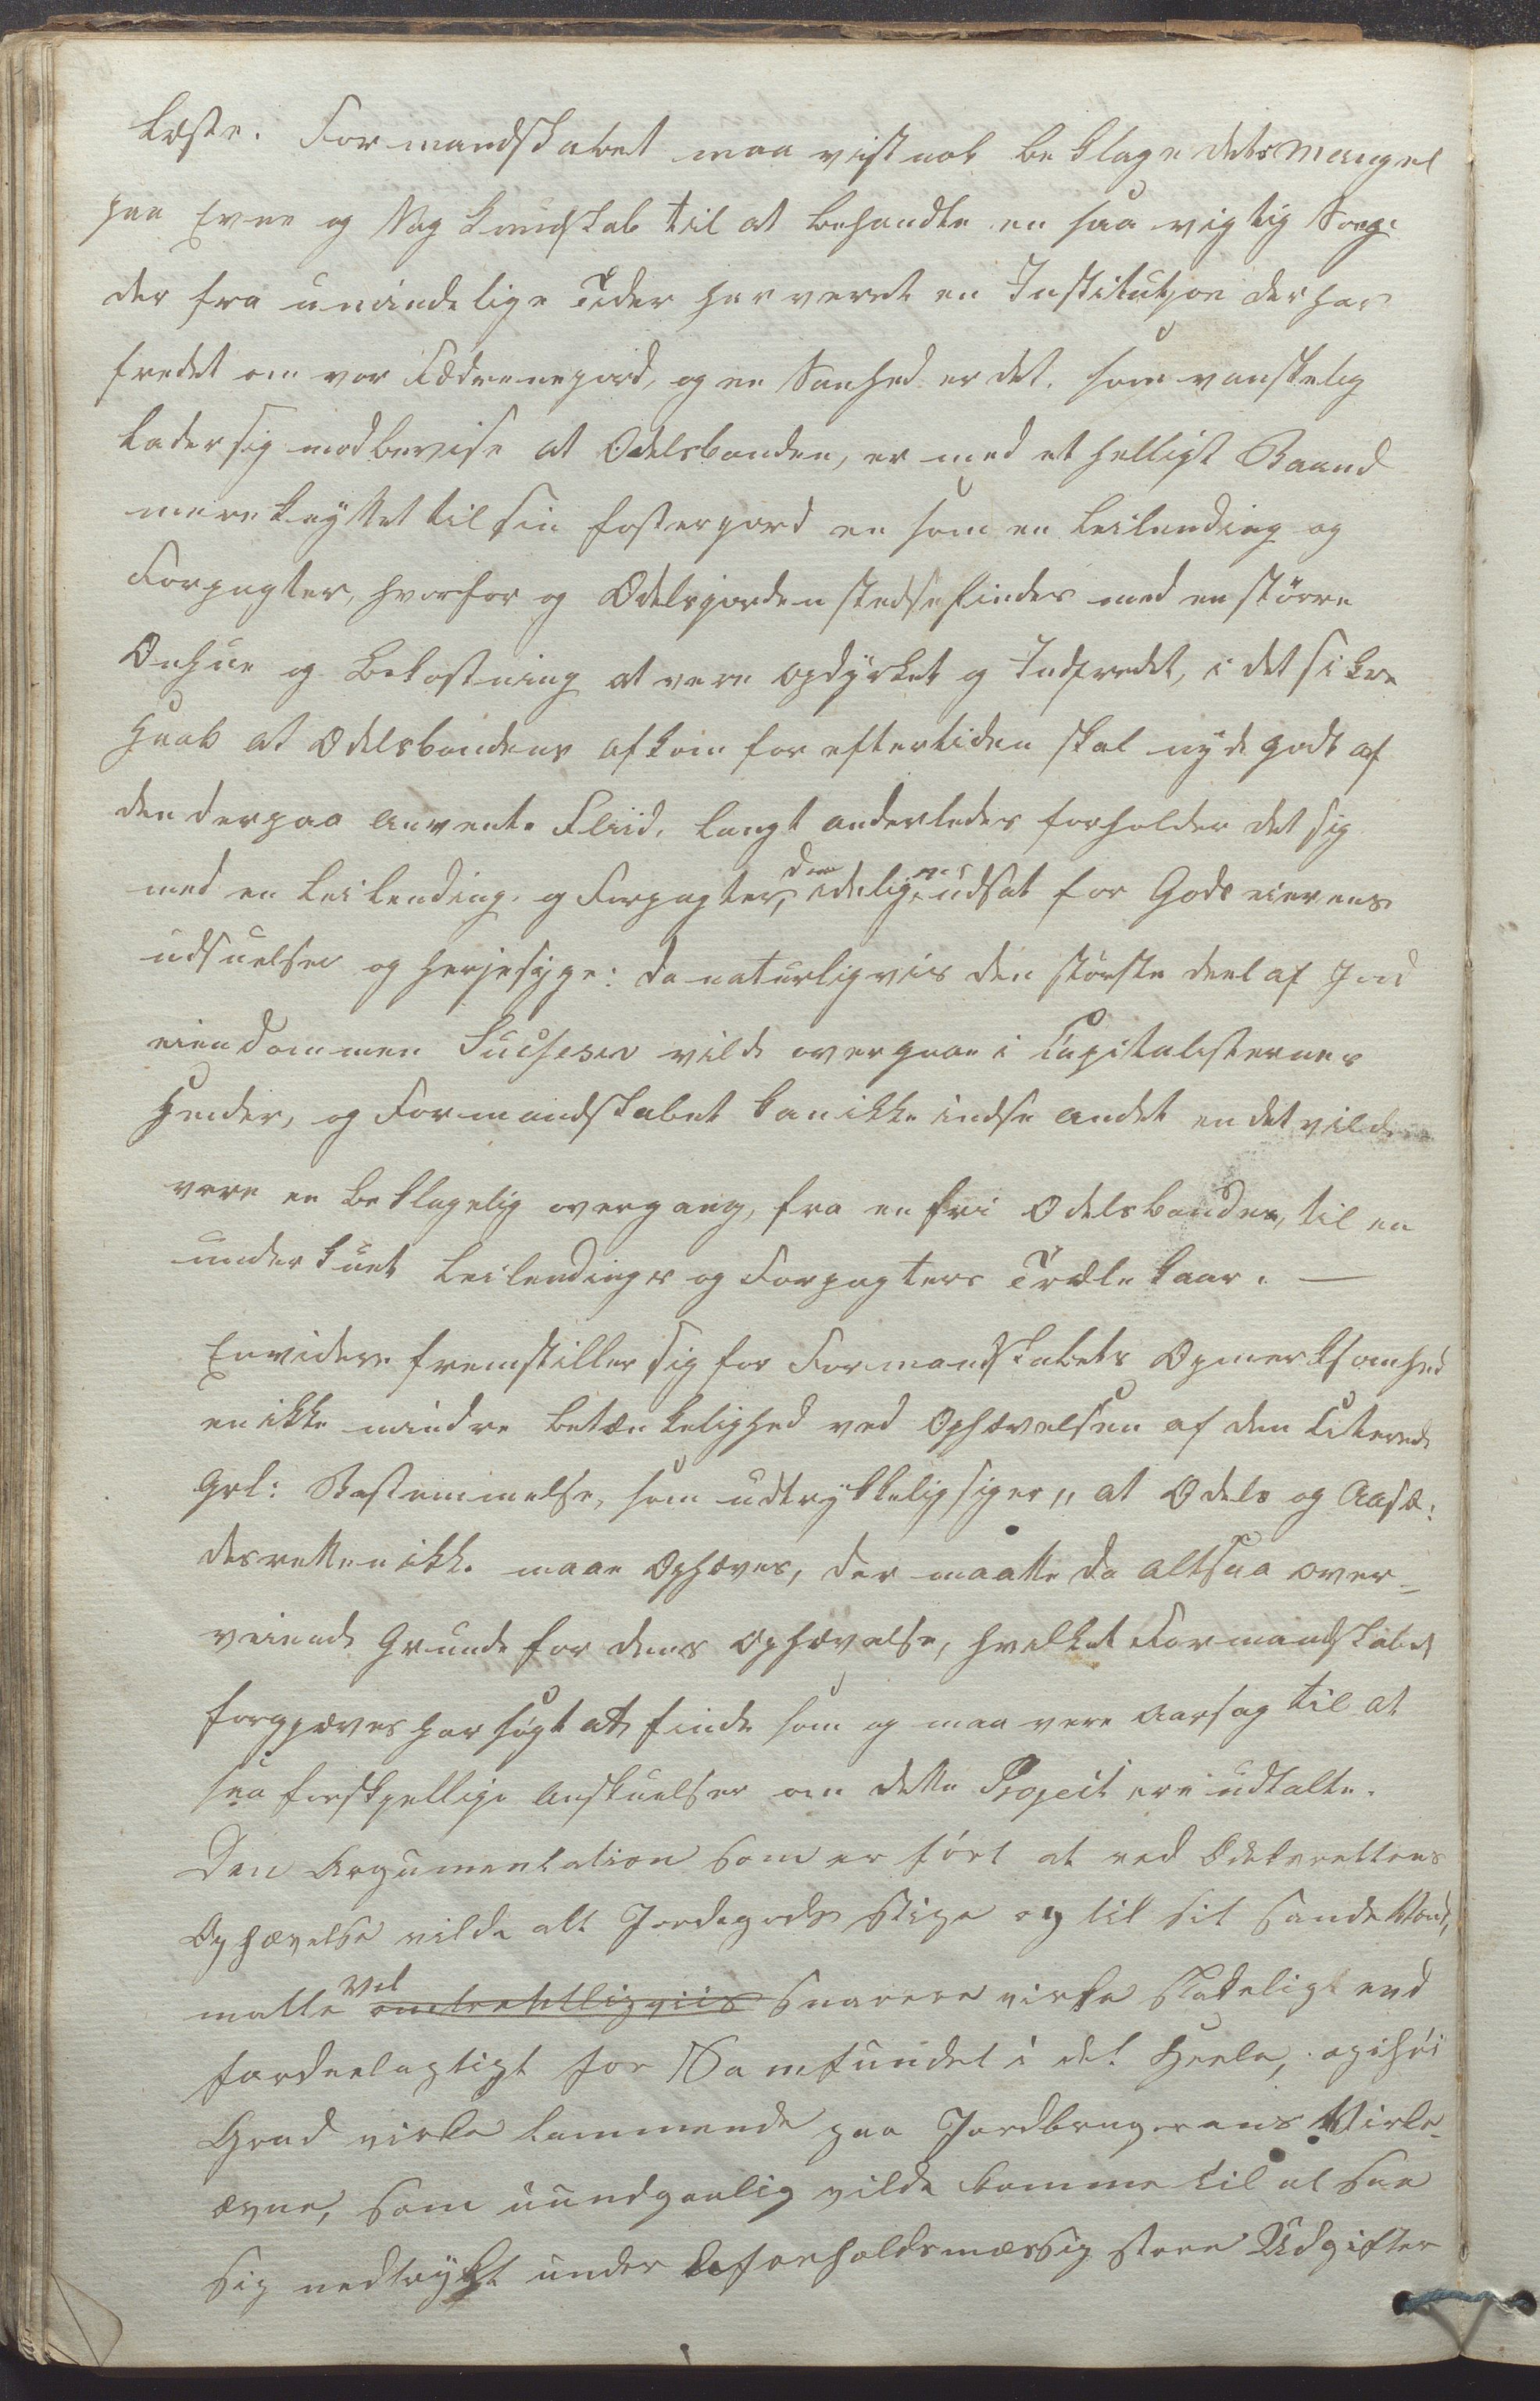 læste. Formandskabet maa vistnok beklage dets Mangel
paa Evne og Sagkundskab til at behandle en saa vigtig Sag.
der fra umindelige Tider har veret en Institutjon der har
fredet om vor Fædrenejord, og en Sanhed er det, som vanskelig
lader sig modbevise at Odelsbonden, er med et helligt Baand
mere knyttet til sin fosterjord en som en Leilending og
Forpagter, hvorfor og Odelsjorden stedse findes med en större
Omhue og Bekostning at vere opdyrket og Indfredet, i det sikre
Haab at Odelsbondens afkom for eftertiden skal nyde godt af
den derpaa anvente Fliid. langt anderledes forholder det sig
med en Leilending og Forpagter, der idelig er udsat for Godseierens
udsuelser og herjesyge: da naturligvis den störste deel af Jord
eiendommen Sucsesiv vilde overgaae i Capitalisternes
Hender, og Formandskabet kan ikke indse andet en det vilde
vere en beklagelig overgang, fra en fri Odelsbonde, til en
underkuet Leilendings og Forpagters Trælekaar. —
Envidere fremstiller sig for Formandskabets Opmerksomhed
en ikke mindre betænkelighed ved Ophævelsen af den Citerede
Grl: Bestemmelse, som udtrykkelig siger „ at Odels og Aasæ:
desretten ikke maae Ophæves, der maatte da altsaa over-
veiende Grunde for dens ophævelse, hvilket Formandskabet
forgjæves har søgt at finde som og maa vere Aarsag til at
saa forskjellige Anskuelser om dette Project ere udtalte.
Den Argumentation som er fört at ved Odelsrettens
Ophævelse vilde alt Jordegods stige og til sit sande Værd,
maatte vel snarere virke skadeligt end
fordeelagtigt for Samfundet i det Heele, og i höi
Grad virke lammende paa Jordbrugerens Virke-
ævne, som uundgaalig vilde komme til at see
sig nedtrykt under de forholdsmæssig store Udgifter